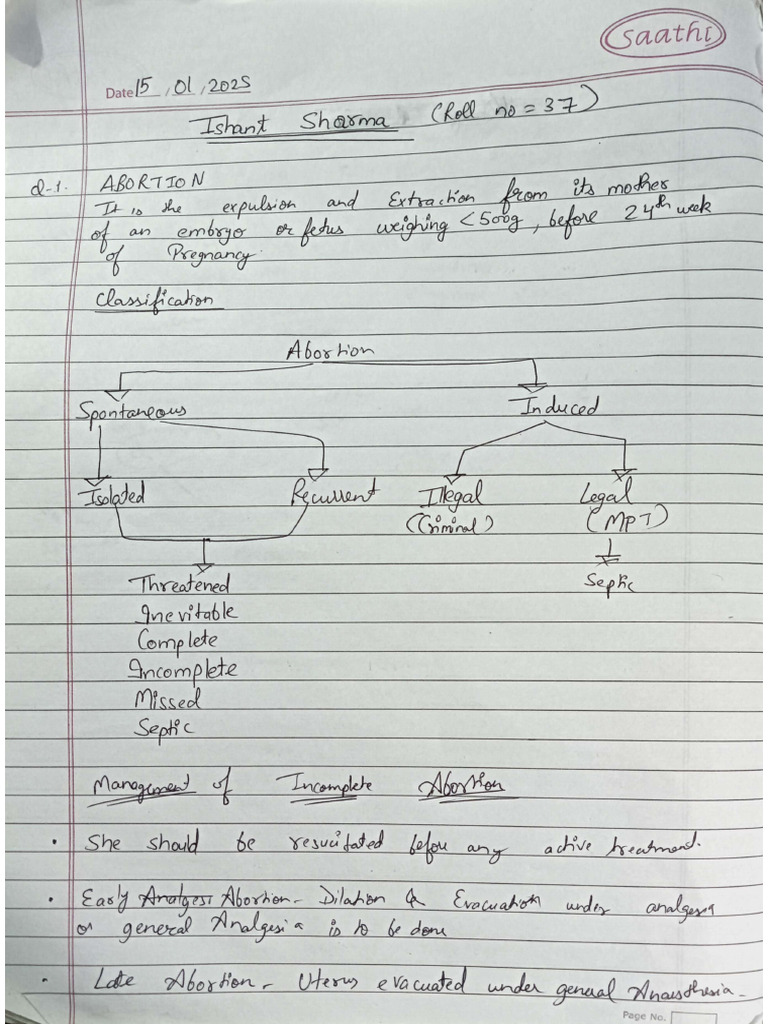 saathi
Date 15, 01, 2025
Ishant Sharma (Roll no = 37)
Q-1. ABORTION
It is the expulsion and Extraction from its mother
of an embryo or fetus weighing <500g, before 24th week
of Pregnancy.
Classification
Abortion
Spontaneous Induced
Isolated Recurrent Illegal Legal
(Criminal) (MPT)
Septic
Threatened
Inevitable
Complete
Incomplete
Missed
Septic
Management of Incomplete Abortion
• She should be resucitated before any active treatment.
• Early Abortion - Dilation & Evacuation under analgesia
or general Analgesia is to be done
• Late Abortion - Uterus evacuated under general Anaesthesia -
Page No.